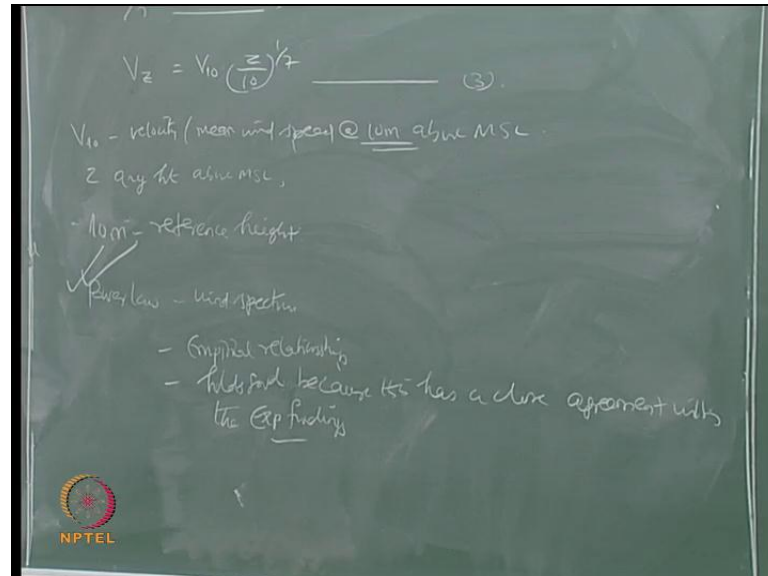 V_z = V_10 (z/10)^1/7 ——— (3).
V_10 - velocity / mean wind speed @ 10m above MSL.
z any ht above MSL,
- 10m - reference height
Power law - wind spectrum
- Empirical relationship
- holds good because it has a close agreement with
the exp findings
NPTEL